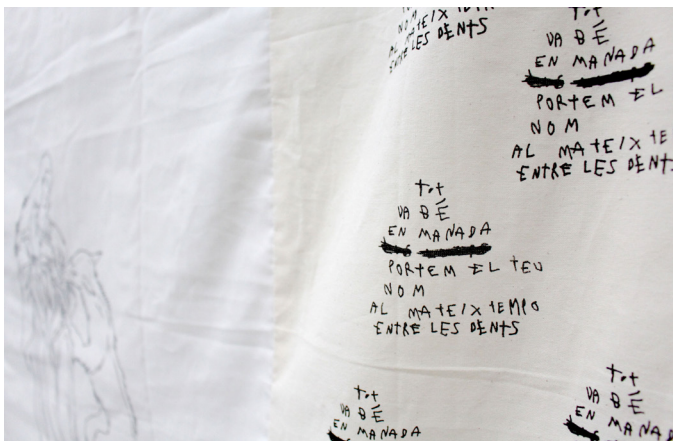 NOM
AL MATEIX TEMPO
ENTRE LES DENTS
Tot
VA BÉ
EN MANADA
PORTEM EL
NOM
AL MATEIX TE
ENTRE LES DENT
Tot
VA BÉ
EN MANADA
PORTEM EL TEU
NOM
AL MATEIX TEMPO
ENTRE LES DENTS
Tot
VA BÉ
EN MANADA
Tot
VA BÉ
EN MANAD